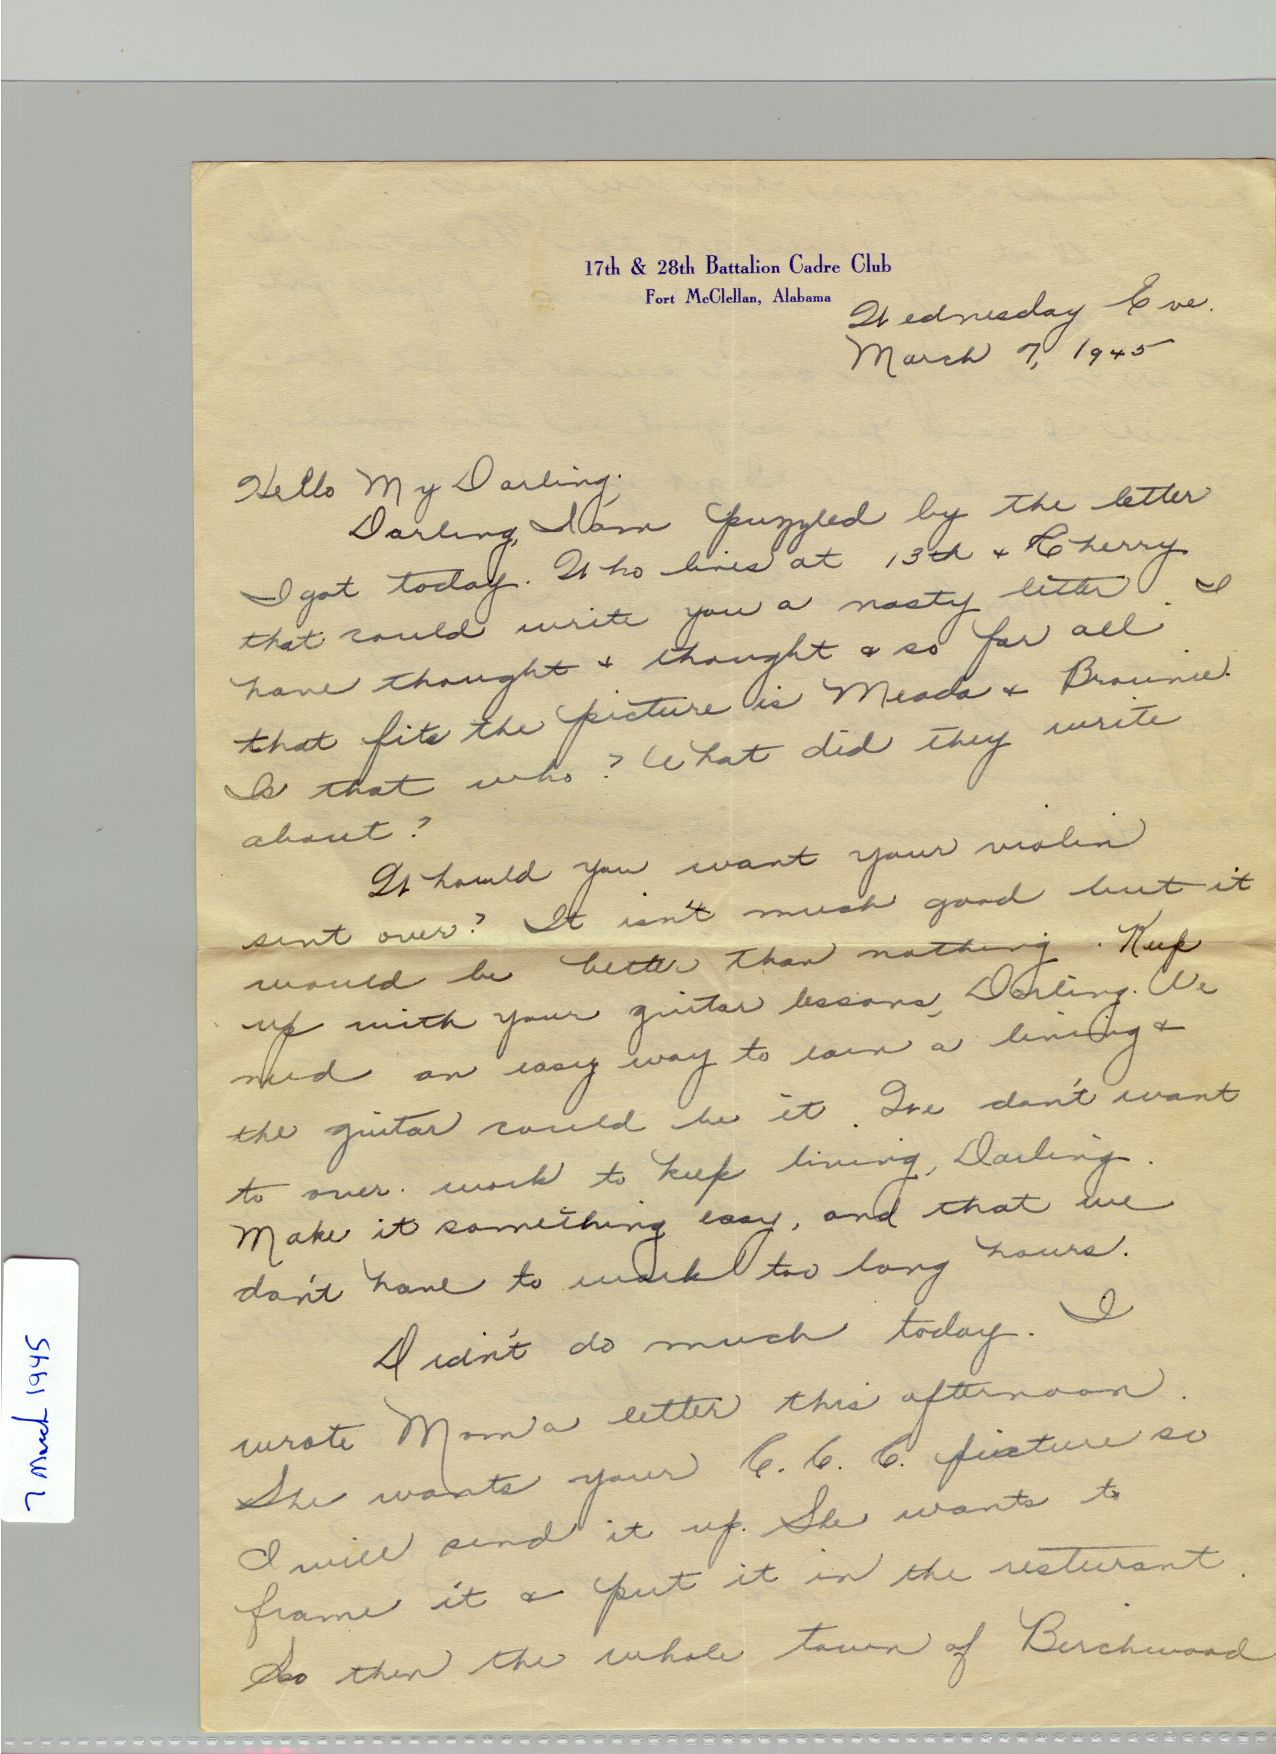 17th & 28th Battalion Cadre Club
Fort McClellan, Alabama
Wednesday Eve.
March 7, 1945
Hello My Darling;
Darling, I am puzzled by the letter
I got today. Who lives at 13th & Cherry
that could write you a nasty letter. I
have thought & thought & so far all
that fits the picture is Meada & Brownie.
Is that who? What did they write
about?
Whould you want your violin
sent over? It isn't much good but it
would be better than nothing. Keep
up with your guitar lessons, Darling. We
need an easy way to earn a living &
the guitar could be it. We don't want
to over work to keep living, Darling.
Make it something easy, and that we
don't have to work too long hours.
Didn't do much today. I
wrote Mom a letter this afternoon.
She wants your C. C. C. picture so
I will send it up. She wants to
frame it & put it in the resturant.
So then the whole town of Berchwood
7 March 1945